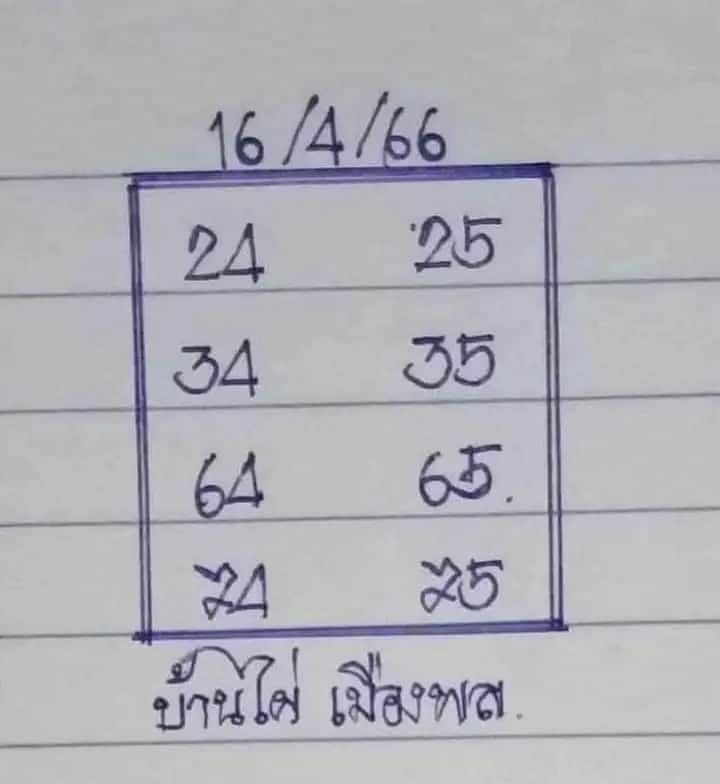 16/4/66
24 25
34 35
64 65.
74 75
บ้านไผ่ เมืองพล.